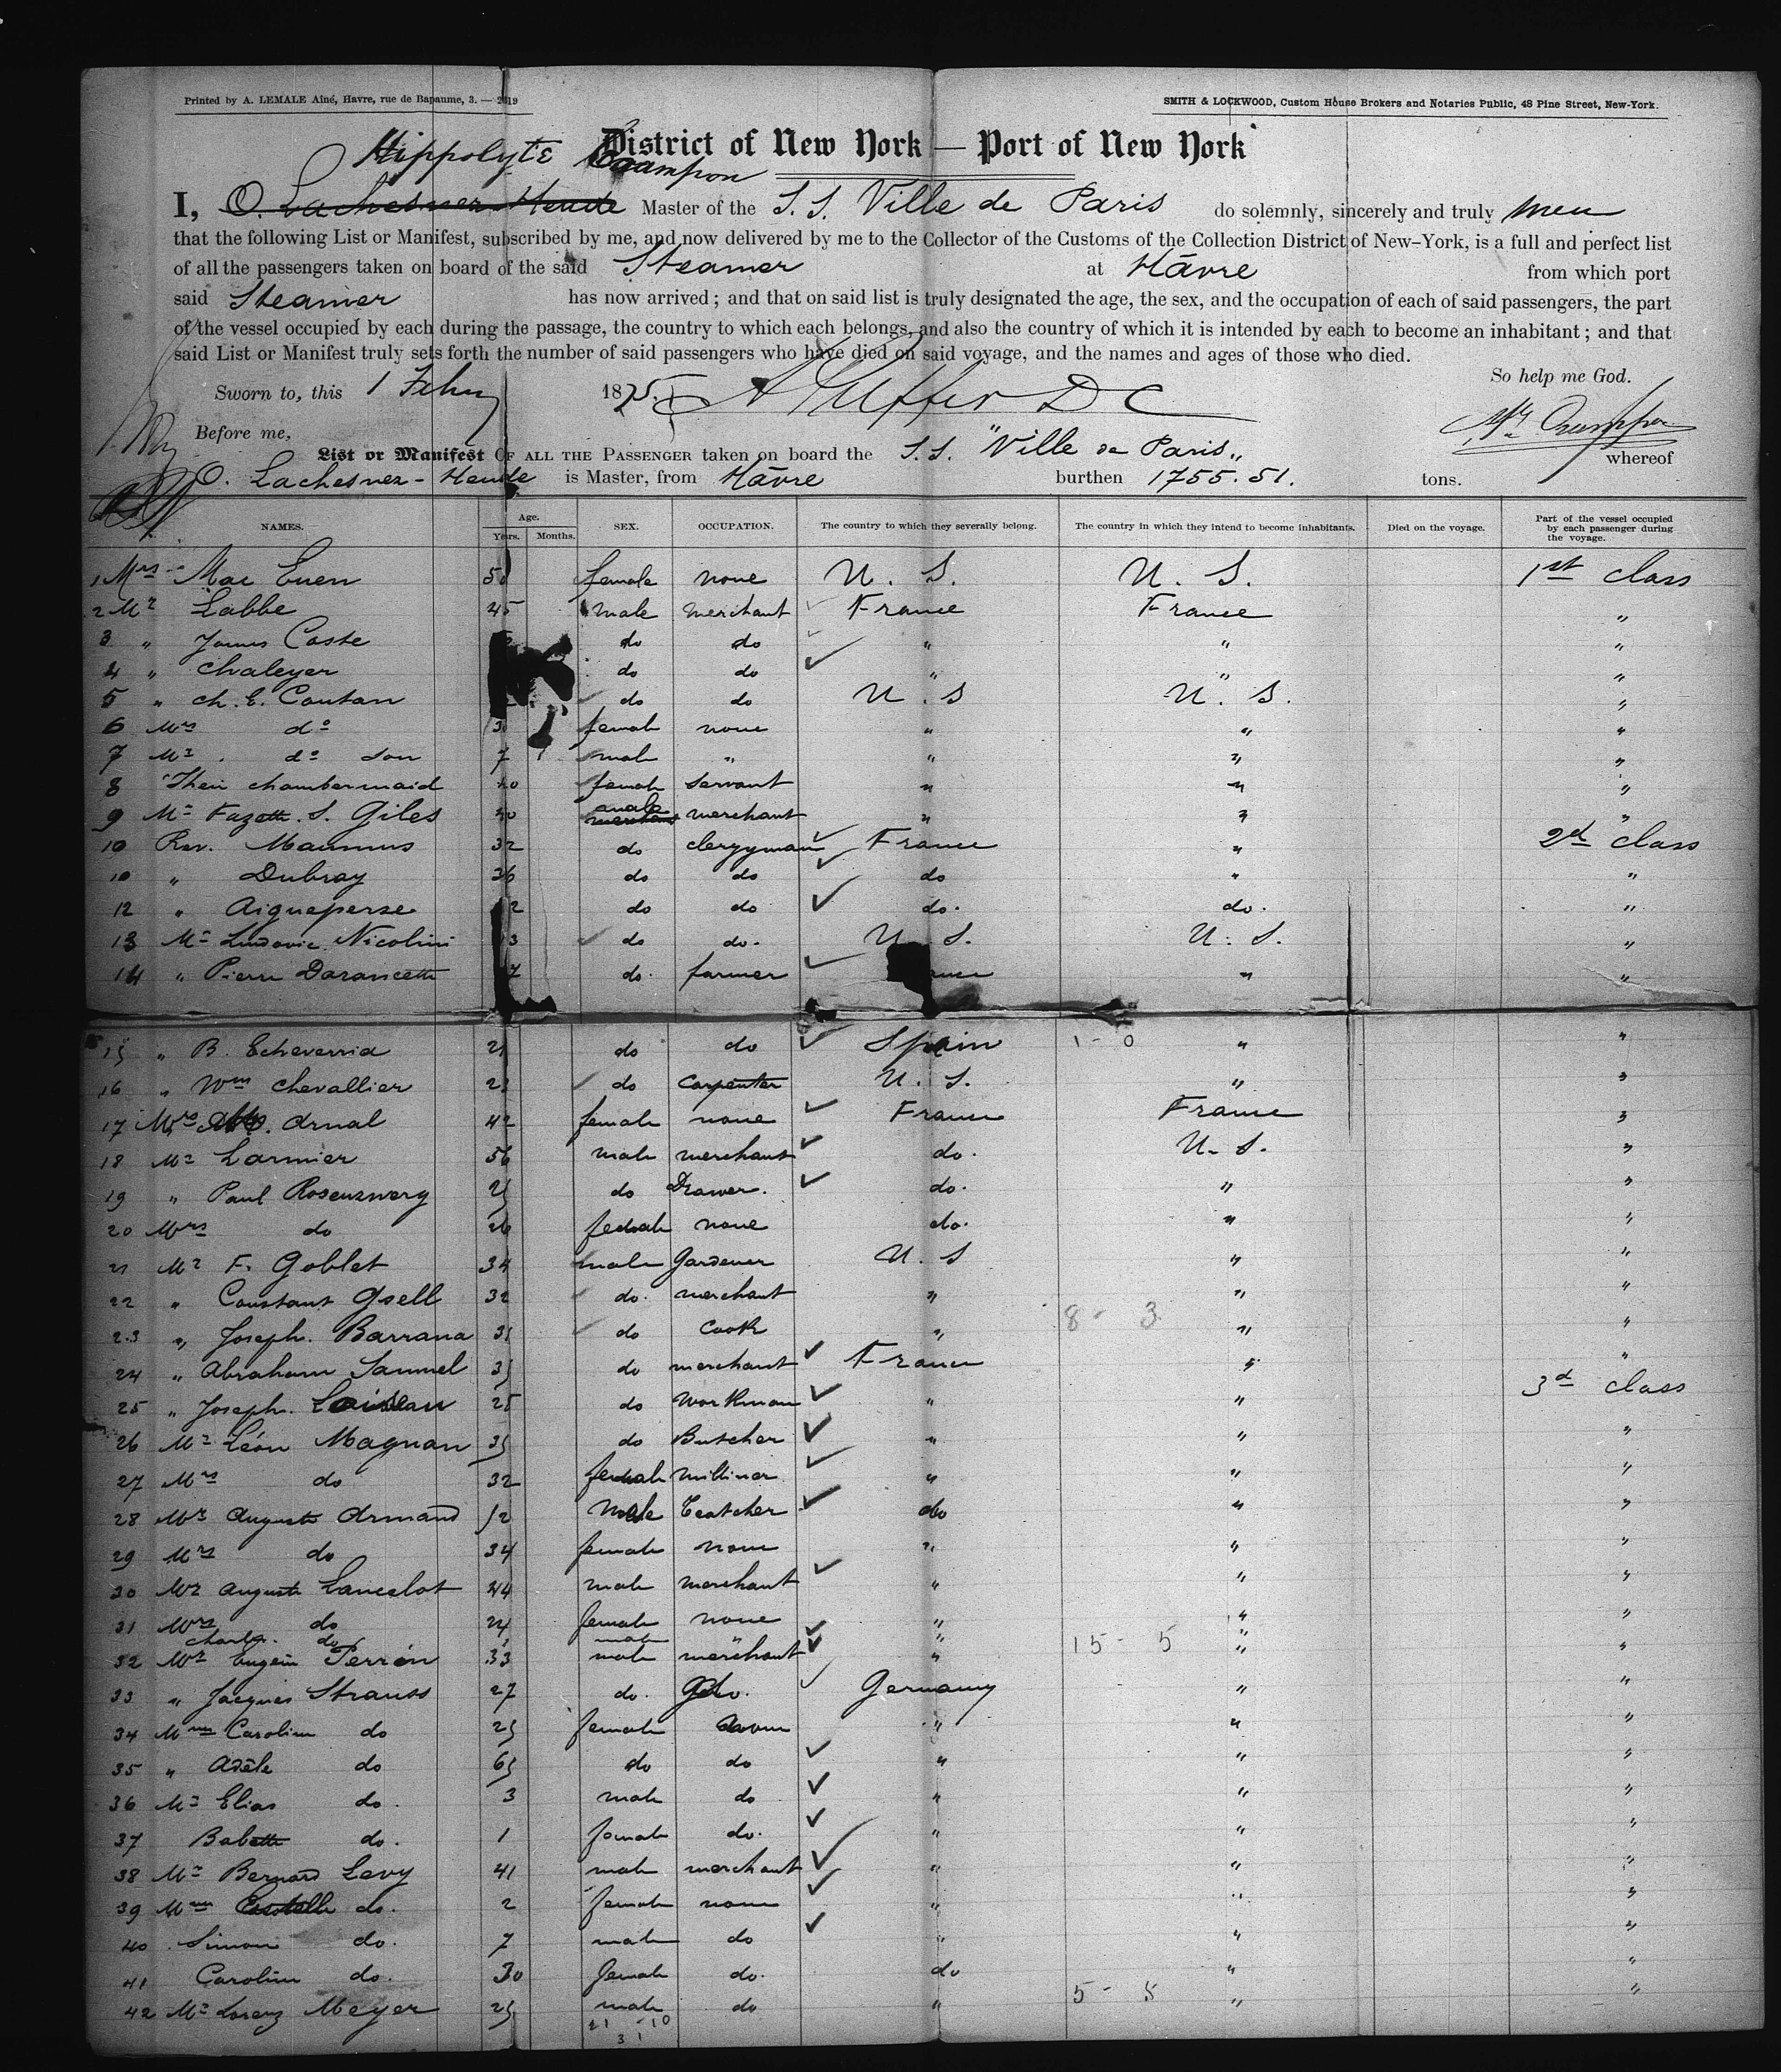 Printed by A. LEMALE Aîné, Havre, rue de Bapaume, 3. — 2619
SMITH & LOCKWOOD, Custom House Brokers and Notaries Public, 48 Pine Street, New-York.
District of New York — Port of New York
Hippolyte
I, O. Lachesnez-Heude Master of the S.S. Ville de Paris do solemnly, sincerely and truly
that the following List or Manifest, subscribed by me, and now delivered by me to the Collector of the Customs of the Collection District of New-York, is a full and perfect list
of all the passengers taken on board of the said Steamer at Hâvre from which port
said Steamer has now arrived; and that on said list is truly designated the age, the sex, and the occupation of each of said passengers, the part
of the vessel occupied by each during the passage, the country to which each belongs, and also the country of which it is intended by each to become an inhabitant; and that
said List or Manifest truly sets forth the number of said passengers who have died on said voyage, and the names and ages of those who died.
So help me God.
Sworn to, this 1 Feby 1875.
Before me,
List or Manifest OF ALL THE PASSENGER taken on board the S.S. "Ville de Paris" whereof
O. Lachesnez-Heude is Master, from Hâvre burthen 1755.51. tons.
NAMES. Age. Years. Months. SEX. OCCUPATION. The country to which they severally belong. The country in which they intend to become inhabitants. Died on the voyage. Part of the vessel occupied by each passenger during the voyage.
1 Mrs Mac Euen 50 female none U. S. U. S. 1st class
2 Mr Labbe 45 male merchant France France "
3 " James Coste do do " " "
4 " Chaleyer do do " " "
5 " Ch. E. Coutan do do U. S U. S. "
6 Mrs do 30 female none " " "
7 Mr do son 7 male " " " "
8 Their chambermaid 40 female servant " " "
9 Mr Fazette. S. Giles 40 male merchant " " "
10 Rev. Maumus 32 do clergyman France " 2d class
10 " Dubray 36 do do do " "
12 " Aigueperse 2 do do do. do. "
13 Mr Ludovic Nicolini 3 do do. U. S. U. S. "
14 " Pierre Darancette 7 do. farmer " "
15 " B. Echeverria 21 do do Spain 1-0 " "
16 " Wm Chevallier do carpenter U. S. " "
17 Mrs Arnal 42 female none France France "
18 Mr Larmier 56 male merchant do. U. S. "
19 " Paul Rosenzwerg 25 do Drawer. do. " "
20 Mrs do 26 female none do. " "
21 Mr F. Goblet 34 male Gardener U. S " "
22 " Constant Gsell 32 do. merchant " " "
23 " Joseph. Barrana 31 do cook " 8-3 " "
24 " Abraham Samuel 35 do merchant France " "
25 " Joseph. Loiseau 25 do workman " " 3d class
26 Mr Léon Magnan 35 do Butcher " " "
27 Mrs do 32 female milliner " " "
28 Mr Auguste Armand 52 Male Teatcher do " "
29 Mrs do 34 female none " " "
30 Mr Auguste Lancelot 44 male merchant " " "
31 Mrs do 24 female none " " "
Charles. do male " " "
32 Mr Eugein Perrón 33 male merchant " 15-5 " "
33 " Jacques Strauss 27 do. do. Germany " "
34 Mme Caroline do 25 female none " " "
35 " Adèle do 65 do do " " "
36 Mr Elias do. 3 male do " " "
37 Babette do. 1 female do. " " "
38 Mr Bernard Levy 41 male merchant " " "
39 Mme do. 2 female none " " "
40 Simon do. 7 male do " " "
41 Caroline do. 30 female do. do " "
42 Mr Lorenz Meyer 25 male do " 5-5 " "
21-10
31